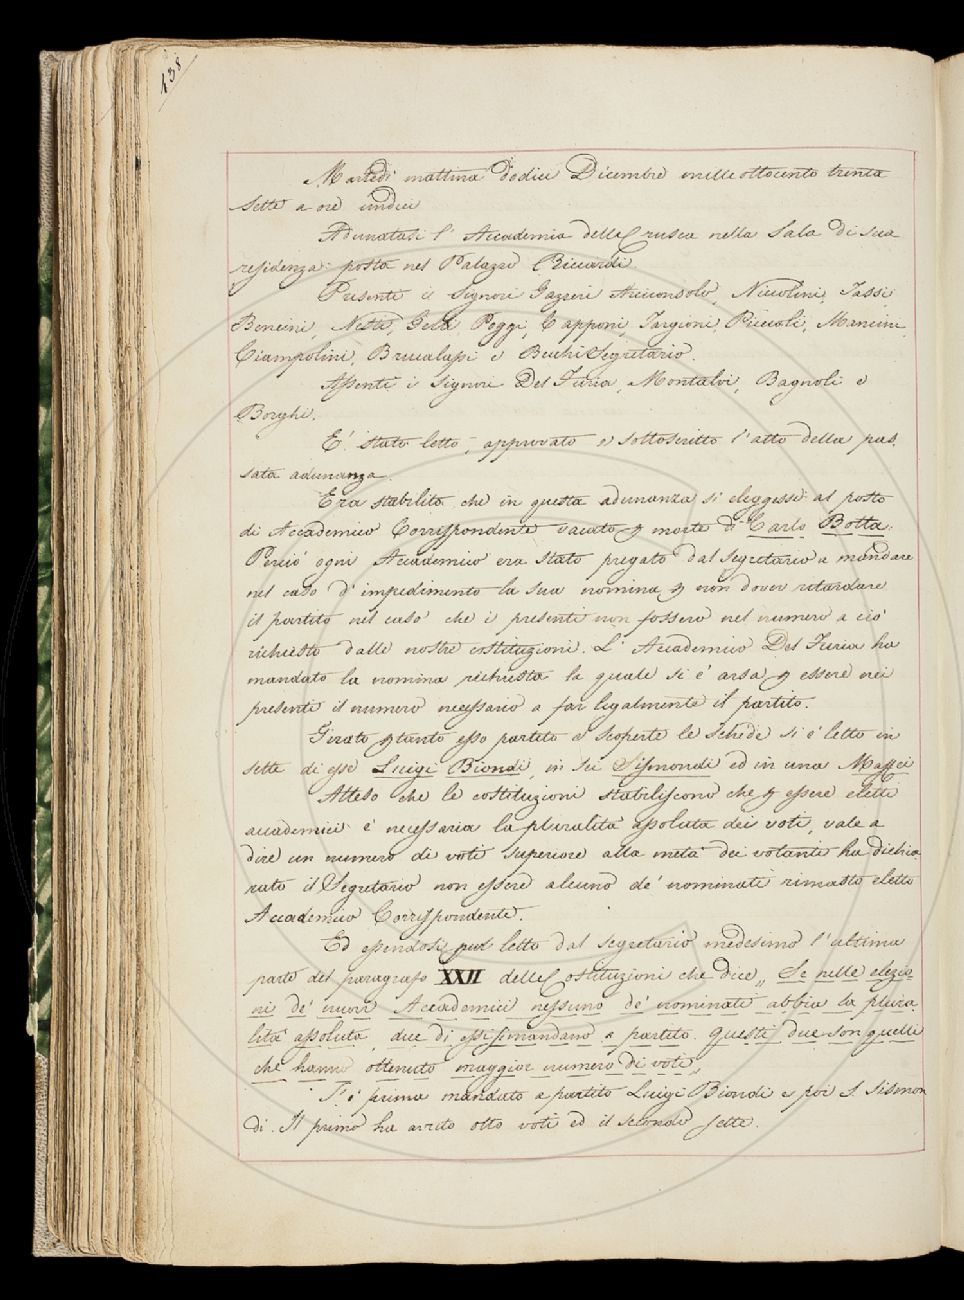 138
Martedì mattina dodici Dicembre mille ottocento trenta
sette a ore undici
Adunatasi l' Accademia della Crusca nella Sala di sua
residenza posta nel Palazzo Riccardi.
Presenti i Signori Gazzeri Arciconsolo, Niccolini, Tassi,
Bencini, Nesti, Gelli, Poggi, Capponi, Targioni, Piccoli, Mancini,
Ciampolini, Brucalassi e Becchi Segretario.
Assenti i Signori Del Furia, Montalvi, Bagnoli e
Borghi.
E' stato letto, approvato e sottoscritto l'atto della pas,
sata adunanza.
Era stabilito che in questa adunanza si eleggesse al posto
di Accademico Corrispondente vacato p morte di Carlo Botta.
Perciò ogni Accademico era stato pregato dal Segretario a mandare
nel caso d' impedimento la sua nomina p non dover ritardare
il partito nel caso che i presenti non fossero nel numero a ciò
richiesto dalle nostre costituzioni. L' Accademico Del Furia ha
mandato la nomina richiesta la quale si è arsa p essere nei
presenti il numero necessario a far legalmente il partito.
Girato ptanto esso partito e scoperte le schede si è letto in
sette di esse Luigi Biondi, in sei Sismondi ed in una Maffei
Atteso che le costituzioni stabiliscono che p essere eletti
accademici è necessaria la pluralità assoluta dei voti, vale a
dire un numero di voti superiore alla metà dei votanti ha dichia-
rato il Segretario non essere alcuno de' nominati rimasto eletto
Accademico Corrispondente.
Ed essendosi poi letto dal segretario medesimo l'ultima
parte del paragrafo XXII delle Costituzioni che dice „ Se nelle elezio-
ni de' nuovi Accademici nessuno de' nominati abbia la plura-
lità assoluta, due di essi si mandano a partito. Questi due son quelli
che hanno ottenuto maggior numero di voti„
Fù prima mandato a partito Luigi Biondi e poi S. Sismon
di. Il primo ha avuto otto voti ed il secondo sette.